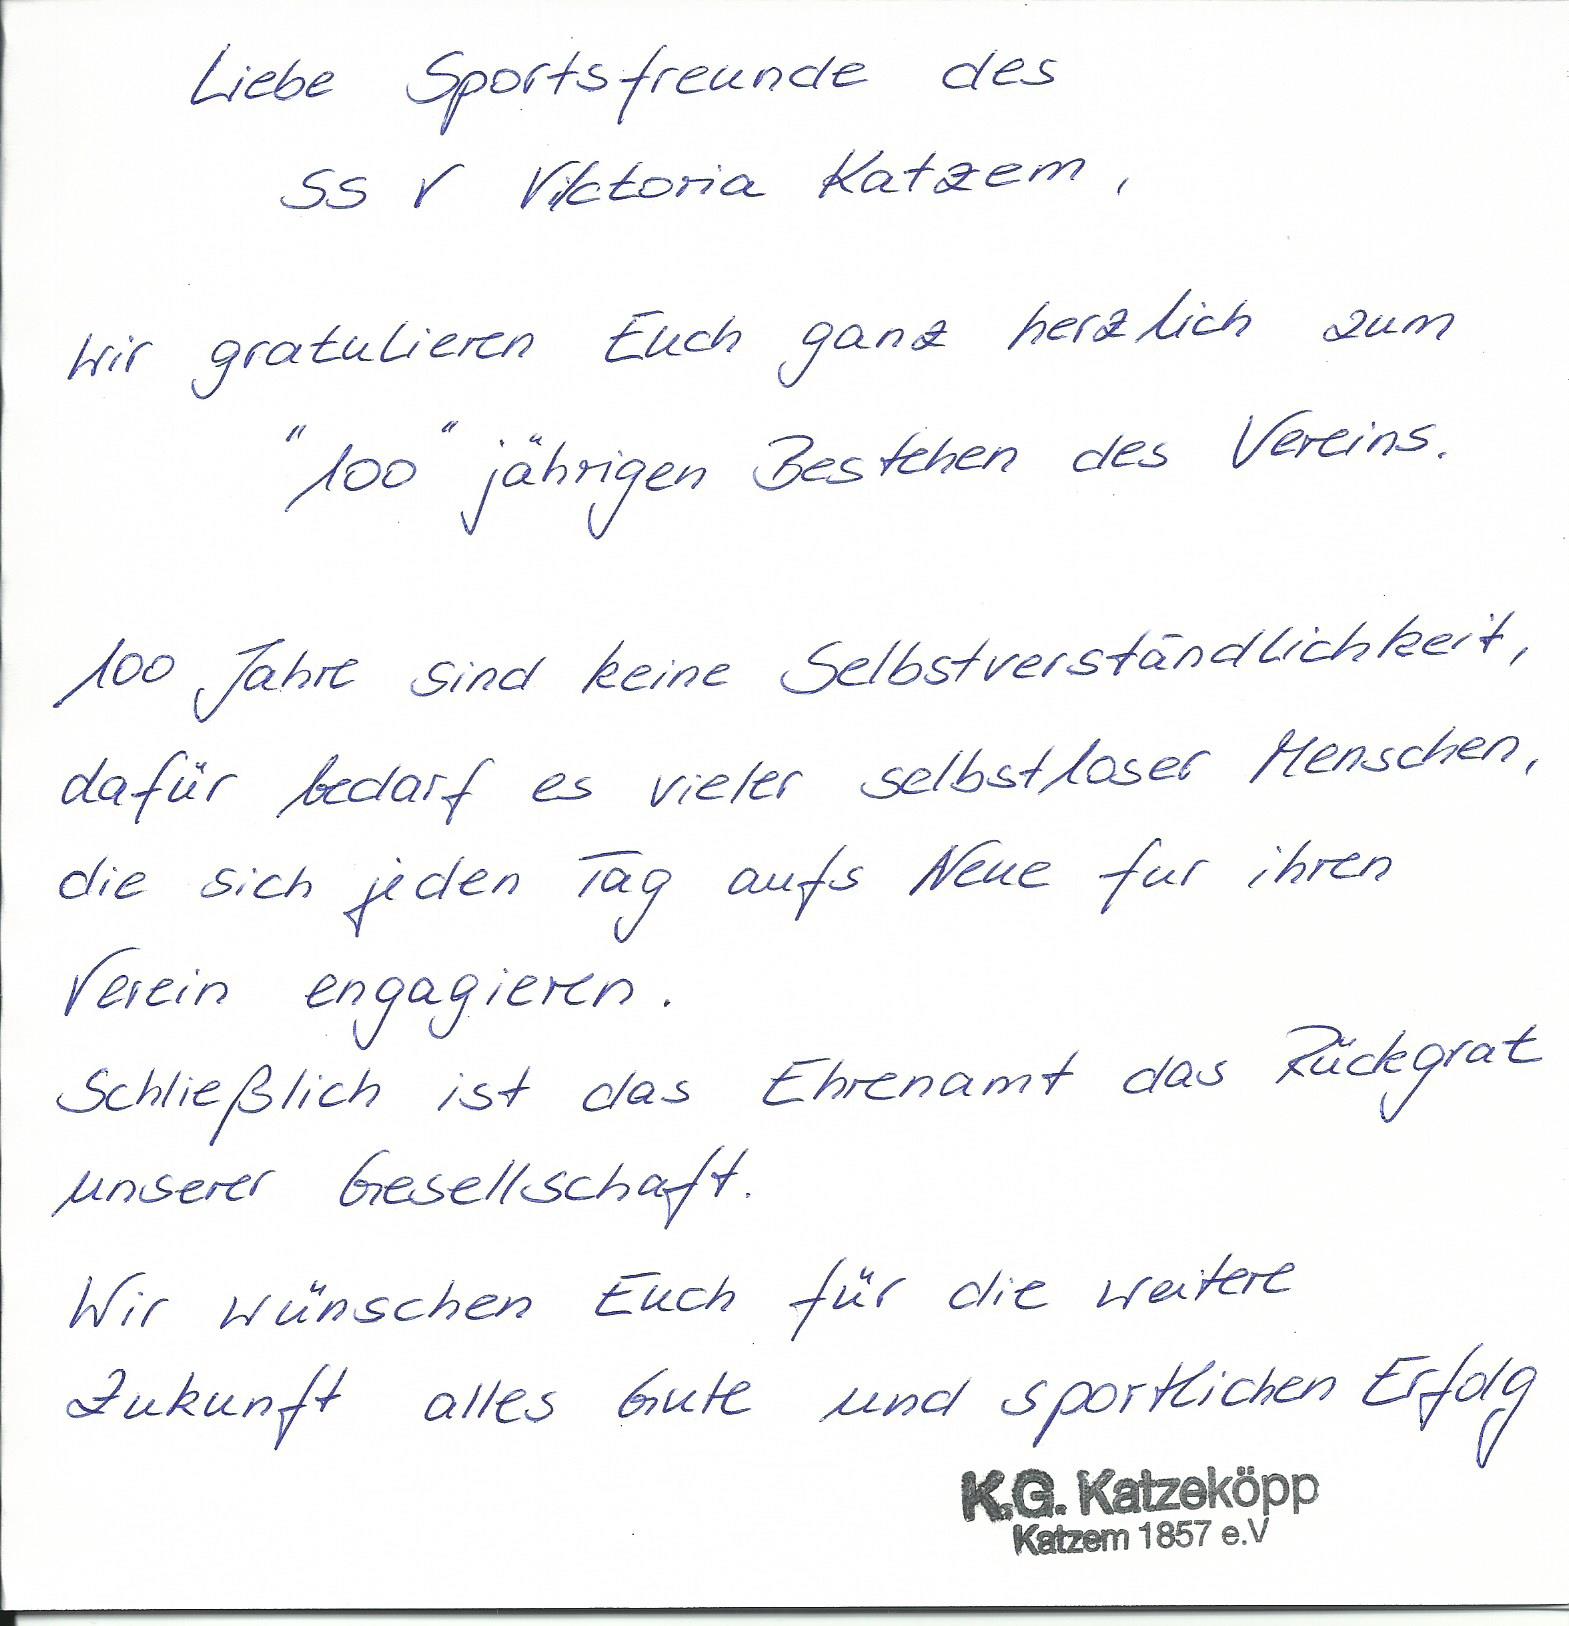 Liebe Sportsfreunde des
SS V Viktoria Katzem,
Wir gratulieren Euch ganz herzlich zum
"100" jährigen Bestehen des Vereins.
100 Jahre sind keine Selbstverständlichkeit,
dafür bedarf es vieler selbstloser Menschen,
die sich jeden Tag aufs Neue fur ihren
Verein engagieren.
Schließlich ist das Ehrenamt das Rückgrat
unserer Gesellschaft.
Wir wünschen Euch für die weitere
Zukunft alles Gute und sportlichen Erfolg
K.G. Katzeköpp
Katzem 1857 e.V